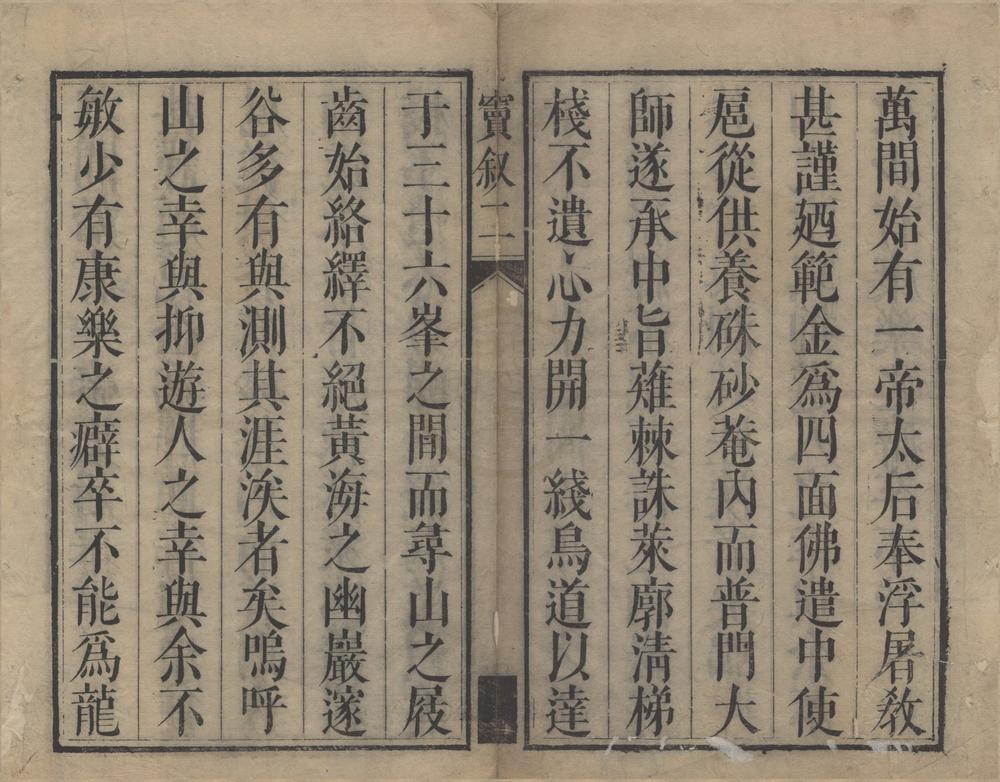 萬間始有一帝太后奉浮屠敎
甚謹廼範金爲四面佛遣中使
扈從供養硃砂菴內而普門大
師遂承中旨薙棘誅萊廓淸梯
棧不遺心力開一綫鳥道以達
竇叙二
于三十六峯之間而尋山之屐
齒始絡繹不絕黃海之幽巖邃
谷多有與測其涯涘者矣嗚呼
山之幸與抑遊人之幸與余不
敏少有康樂之癖卒不能爲龍